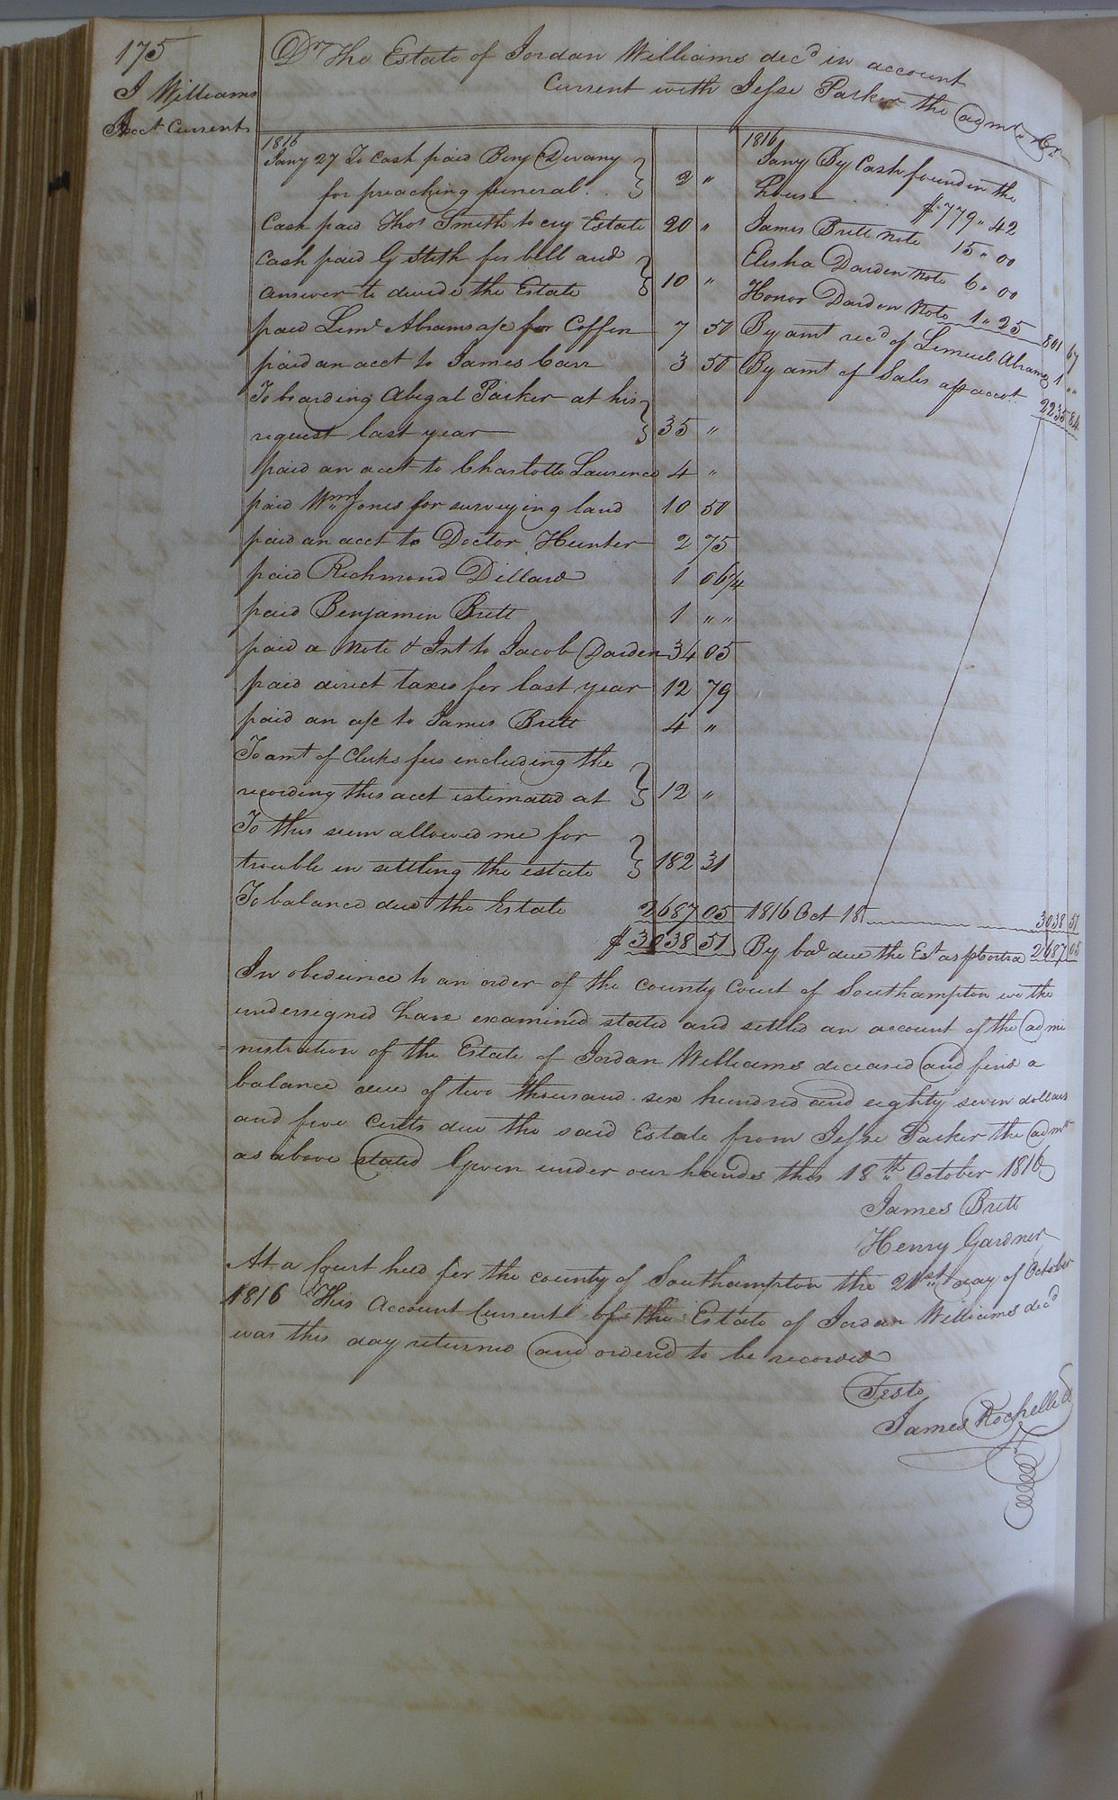 175
J Williams
Acct Current
Dr The Estate of Jordan Williams decd in account
Current with Jesse Parker the admr Cr
1816
Jany 27 To Cash paid Benj Devany
for preaching funeral. 2 "
Cash paid Thos Smith to cry Estate 20 "
Cash paid G Stith for bill and
answer to divide the Estate 10 "
paid Leml Abrams a/c for Coffin 7 50
paid an acct to James Carr 3 50
To boarding Abigal Parker at his
request last year 35 "
paid an acct to Charlotte Laurence 4 "
paid Wm Jones for surveying land 10 50
paid an acct to Doctor Hunter 2 75
paid Richmond Dillard 1 06 1/4
paid Benjamin Britt 1 " "
paid a Note & Int to Jacob Darden 34 05
paid direct taxes for last year 12 79
paid an a/c to James Britt 4 "
To amt of Clerks fees including the
recording this acct estimated at 12 "
To this sum allowed me for
trouble in settling the estate 182 31
To balance due the Estate 2687 05
$ 3038 51
1816
Jany By Cash found in the
house $779 " 42
James Britt note 15 " 00
Elisha Darden note 6 " 00
Honor Darden Note 1 " 25 801 67
By amt recd of Lemuel Abrams 1 " "
By amt of Sales a/ acct 2235 84
1816 Oct 18 3038 51
By bal due the Est as pr Contra 2687 05
In obedience to an order of the County Court of Southampton we the
undersigned have examined stated and settled an account of the admi
nistration of the Estate of Jordan Williams deceased and find a
balance due of two thousand six hundred and eighty seven dollars
and five Cents due the said Estate from Jesse Parker the admr
as above stated Given under our hands this 18th October 1816
James Britt
Henry Gardner
At a Court held for the county of Southampton the 21st day of October
1816 This Account Current of the Estate of Jordan Williams decd
was this day returned and ordered to be recorded
Teste
James Rochelle Cl